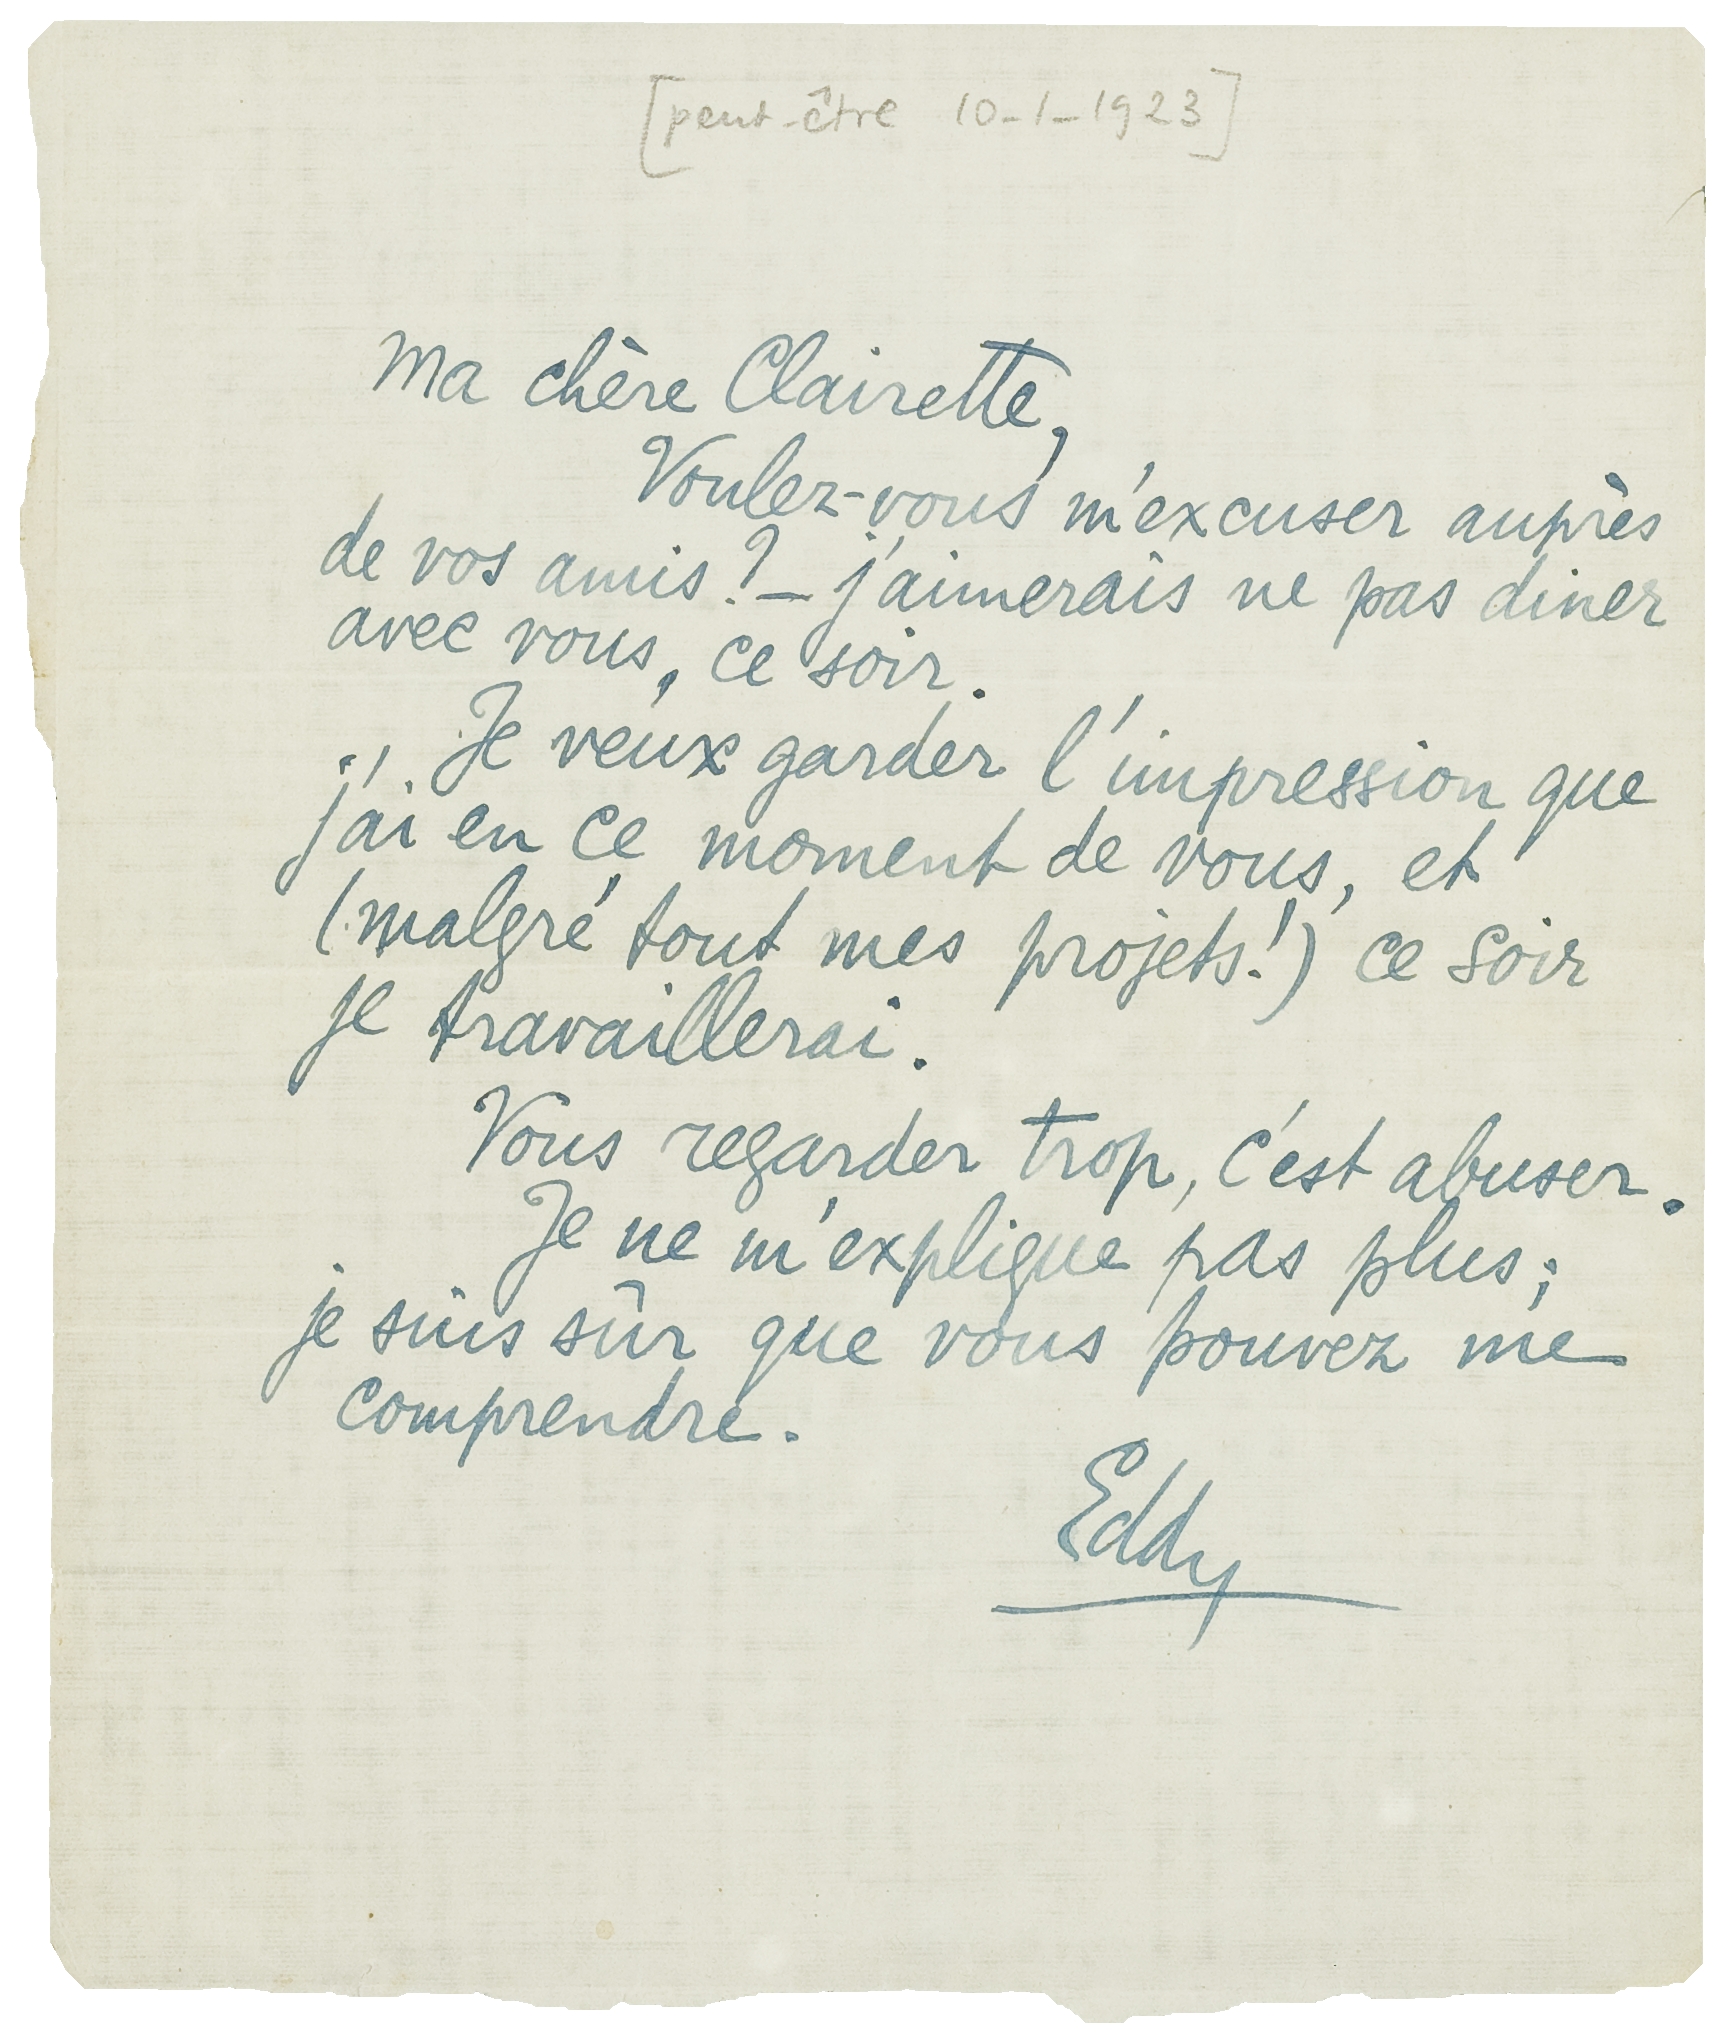 [peut-être 10-1-1923]
Ma chère Clairette,
Voulez-vous m'excuser auprès
de vos amis? — j'aimerais ne pas diner
avec vous, ce soir.
Je veux garder l'impression que
j'ai en ce moment de vous, et
(malgré tout mes projets!) ce soir
je travaillerai.
Vous regarder trop, c'est abuser.
Je ne m'explique pas plus;
je suis sûr que vous pouvez me
comprendre.
Eddy